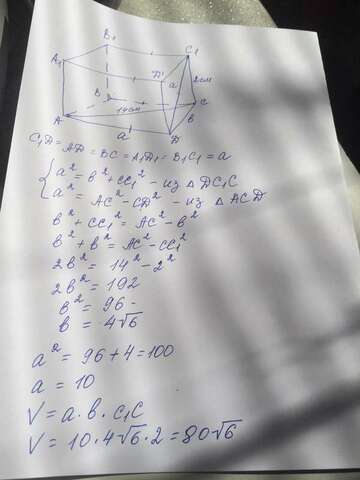 B₁
C₁
A₁
D'
a
2см
B
C
14см
A
в
a
D
C₁D = AD = BC = A₁D₁ = B₁C₁ = a
{ a² = в² + CC₁² - из △ DC₁C
a² = AC² - CD² - из △ ACD
в² + CC₁² = AC² - в²
в² + в² = AC² - CC₁²
2в² = 14² - 2²
2в² = 192
в² = 96
в = 4√6
a² = 96 + 4 = 100
a = 10
V = a · в · C₁C
V = 10 · 4√6 · 2 = 80√6